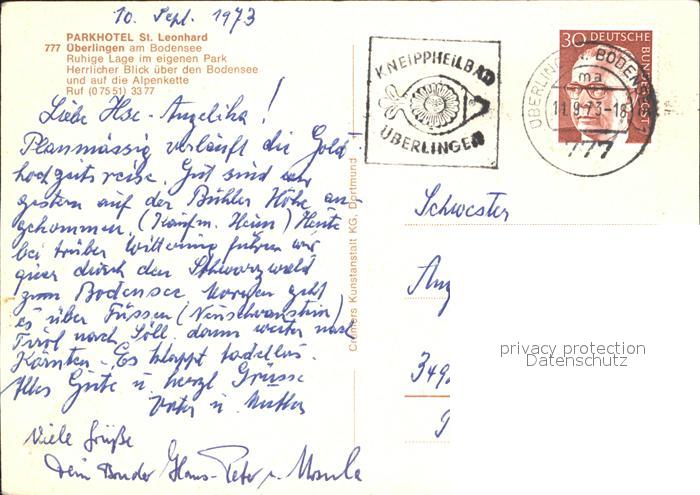 10. Sept. 1973
PARKHOTEL St. Leonhard
777 Überlingen am Bodensee
Ruhige Lage im eigenen Park
Herrlicher Blick über den Bodensee
und auf die Alpenkette
Ruf (0 75 51) 33 77
Liebe Angelika!
Planmässig verläuft die Gold-
hochzeitsreise. Gut sind wir
gestern auf der Bühler Höhe an-
gekommen. (Kaufm. Heim) Heute
bei trüber Witterung fuhren wir
quer durch den Schwarzwald
zum Bodensee. Morgen geht
es über Füssen (Neuschwanstein)
Tirol nach Söll, dann weiter nach
Kärnten. Es klappt tadellos.
Alles Gute u. herzl. Grüsse
Vater u. Mutter
Viele Grüße
Dein Bruder Hans-Peter u. Ursula
Cramers Kunstanstalt KG, Dortmund
KNEIPPHEILBAD
ÜBERLINGEN
ÜBERLINGEN, BODENSEE
ma
11.9.73-18
777
30 DEUTSCHE BUNDESPOST
Schwester
Ang
349
privacy protection
Datenschutz